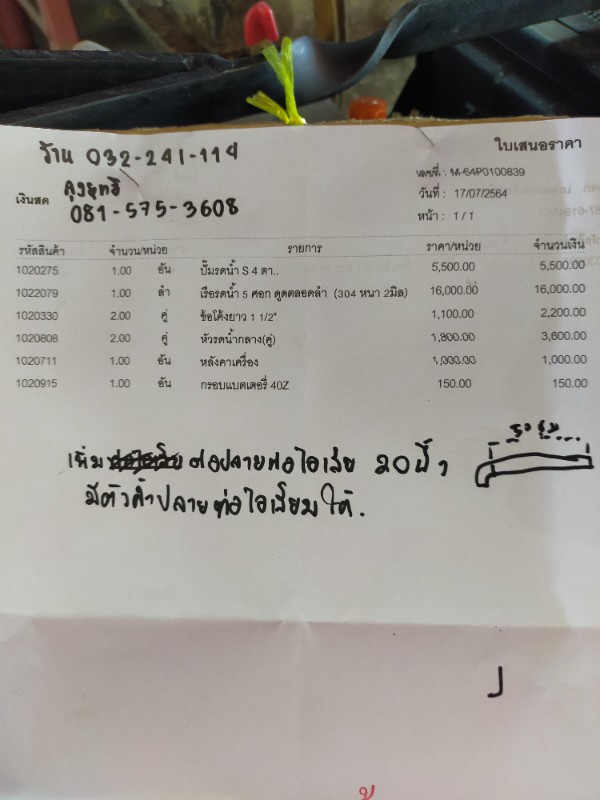 ร้าน 032-241-114
ใบเสนอราคา
เลขที่ : M-64P0100839
เงินสด
081-575-3608
วันที่ : 17/07/2564
หน้า : 1 / 1
รหัสสินค้า จำนวน/หน่วย รายการ ราคา/หน่วย จำนวนเงิน
1020275 1.00 อัน ปั๊มรดน้ำ S 4 ตา.. 5,500.00 5,500.00
1022079 1.00 ลำ เรือรดน้ำ 5 ศอก ดูดตลอดลำ (304 หนา 2มิล) 16,000.00 16,000.00
1020330 2.00 คู่ ข้อโค้งยาว 1 1/2" 1,100.00 2,200.00
1020808 2.00 คู่ หัวรดน้ำกลาง(คู่) 1,800.00 3,600.00
1020711 1.00 อัน หลังคาเครื่อง 1,000.00 1,000.00
1020915 1.00 อัน กรอบแบตเตอรี่ 40Z 150.00 150.00
เพิ่ม ต่อปลายท่อไอเสีย 20 นิ้ว
มีตัวค้ำปลายท่อไอเสียมาให้.